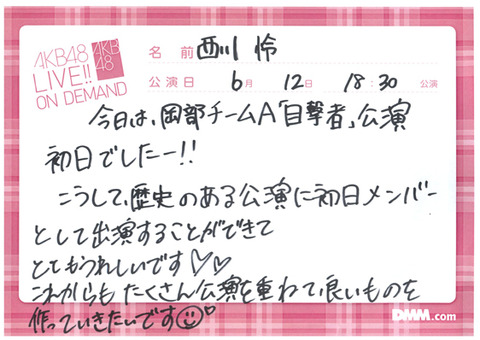 AKB48
LIVE!!
ON DEMAND
AKB
48
名 前 西川 怜
公演日 6月 12日 18:30 公演
今日は、岡部チームA「目撃者」公演
初日でしたー!!
こうして、歴史のある公演に初日メンバー
として出演することができて
とてもうれしいです♡♡
これからもたくさん公演を重ねて良いものを
作っていきたいです☺♡
DMM.com